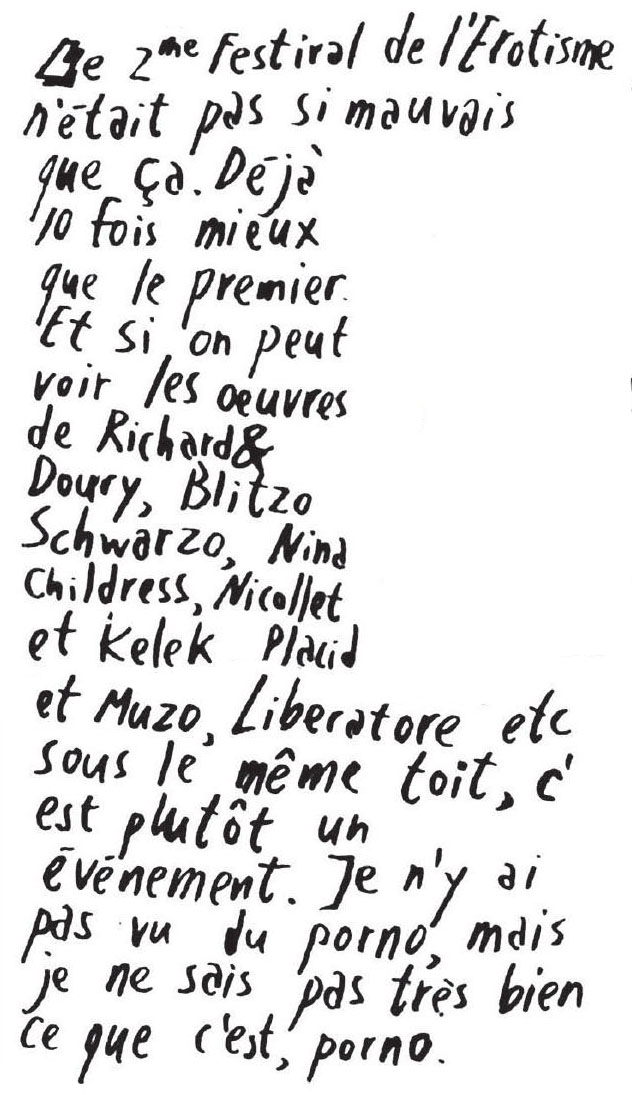 Le 2me Festival de l'Erotisme
n'était pas si mauvais
que ça. Déjà
10 fois mieux
que le premier.
Et si on peut
voir les oeuvres
de Richard&
Doury, Blitzo
Schwarzo, Nina
Childress, Nicollet
et Kelek Placid
et Muzo, Liberatore etc
sous le même toit, c'
est plutôt un
événement. Je n'y ai
pas vu du porno, mais
je ne sais pas très bien
ce que c'est, porno.